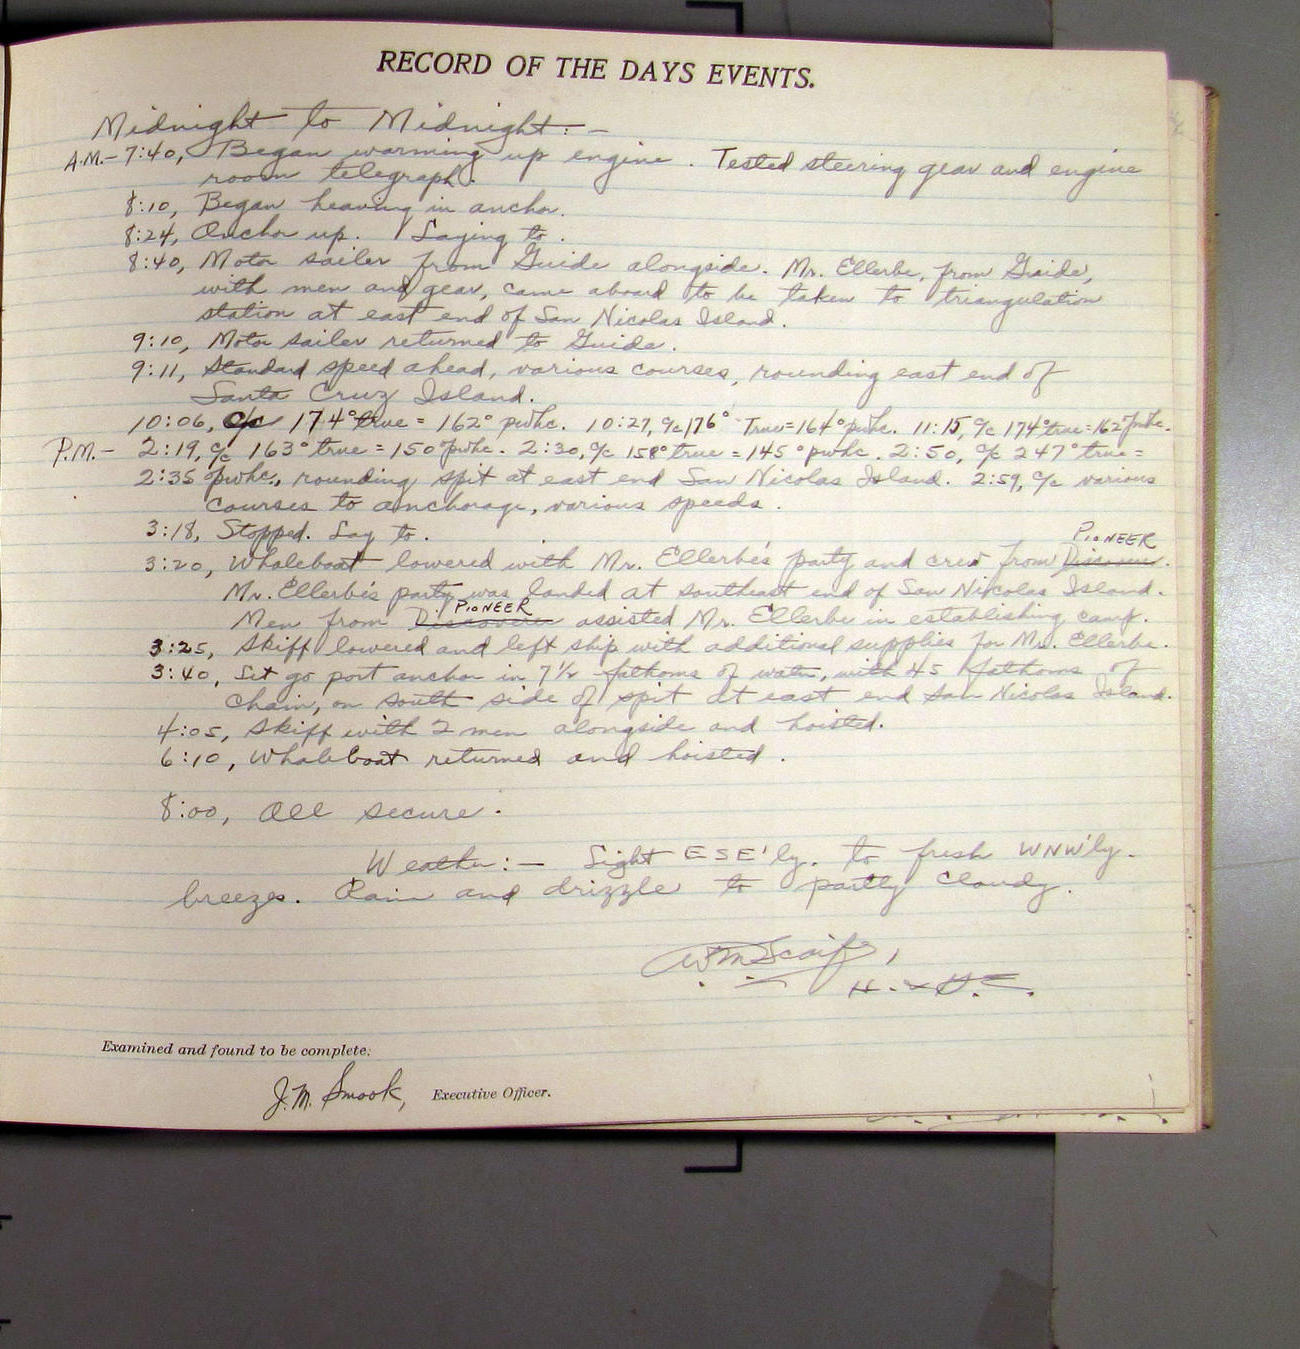 RECORD OF THE DAYS EVENTS.
Midnight to Midnight:-
A.M.- 7:40, Began warming up engine. Tested steering gear and engine
room telegraph.
8:10, Began heaving in anchor.
8:24, Anchor up. Laying to.
8:40, Motor sailer from Guide alongside. Mr. Ellerbe, from Guide,
with men and gear, came aboard to be taken to triangulation
station at east end of San Nicolas Island.
9:10, Motor sailer returned to Guide.
9:11, Standard speed ahead, various courses, rounding east end of
Santa Cruz Island.
10:06, c/c 174° true = 162° pwhc. 10:27, c/c 176° True = 164° pwhc. 11:15, c/c 174° true = 162° pwhc.
P.M.- 2:19, c/c 163° true = 150° pwhc. 2:30, c/c 158° true = 145° pwhc. 2:50, c/c 247° true =
2:35 pwhc, rounding spit at east end San Nicolas Island. 2:59, c/c various
courses to anchorage, various speeds.
3:18, Stopped. Lay to.
PIONEER
3:20, Whaleboat lowered with Mr. Ellerbe's party and crew from Discoverer.
Mr. Ellerbe's party was landed at southeast end of San Nicolas Island.
PIONEER
Men from Discoverer assisted Mr. Ellerbe in establishing camp.
3:25, Skiff lowered and left ship with additional supplies for Mr. Ellerbe.
3:40, Let go port anchor in 7½ fathoms of water, with 45 fathoms of
chain, on south side of spit at east end San Nicolas Island.
4:05, Skiff with 2 men alongside and hoisted.
6:10, Whaleboat returned and hoisted.
8:00, All secure.
Weather:- Light ESE'ly. to fresh WNW'ly.
breezes. Rain and drizzle to partly cloudy.
Wm Scaife,
H. & G. E.
Examined and found to be complete:
J. M. Smook, Executive Officer.